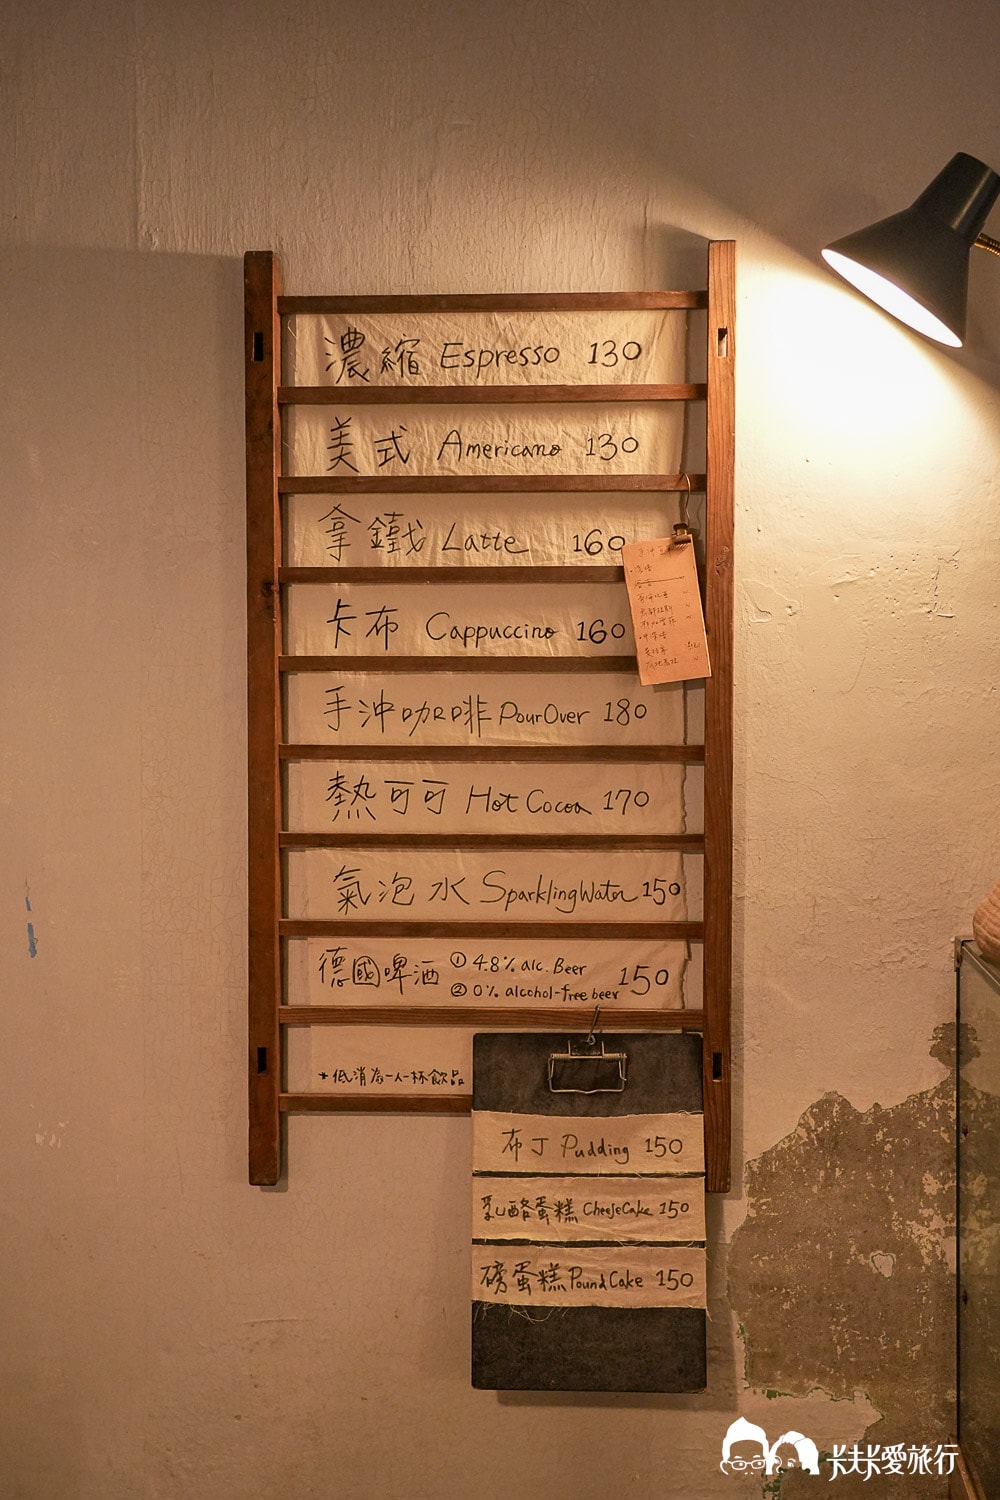 濃縮 Espresso 130
美式 Americano 130
拿鐵 Latte 160
卡布 Cappuccino 160
手沖咖啡 PourOver 180
熱可可 Hot Cocoa 170
氣泡水 SparklingWater 150
德國啤酒 ① 4.8% alc. Beer 150
② 0% alcohol-free beer
*低消為一人一杯飲品
布丁 Pudding 150
乳酪蛋糕 CheeseCake 150
磅蛋糕 PoundCake 150
卡夫卡愛旅行